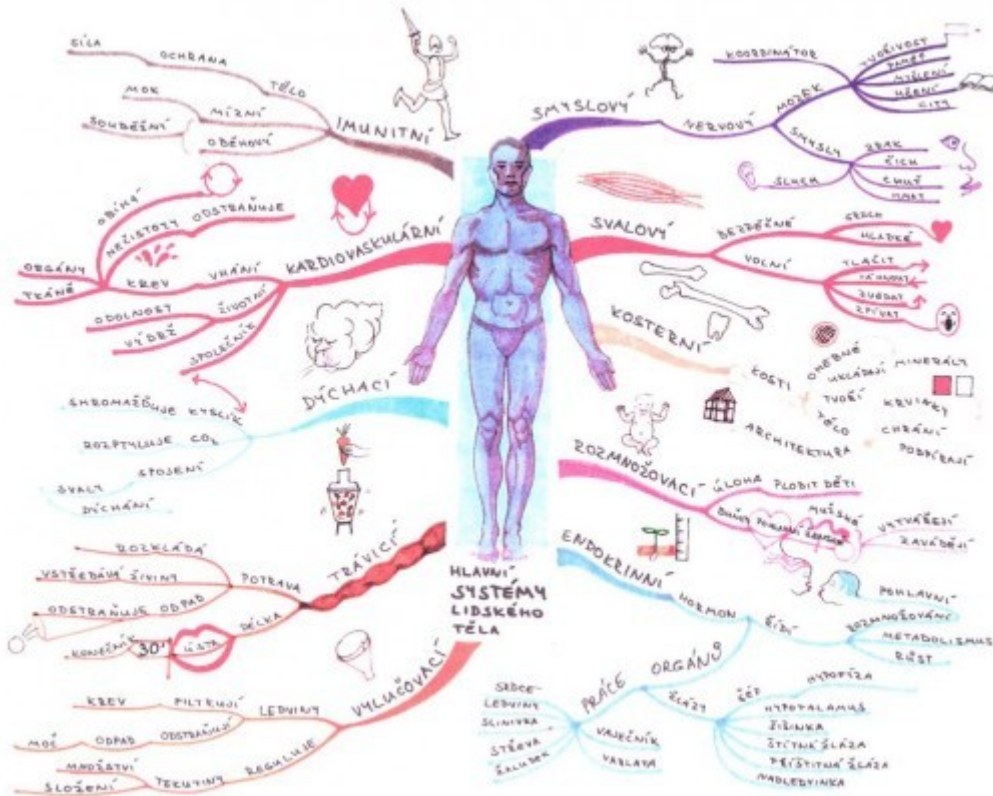 HLAVNÍ
SYSTÉMY
LIDSKÉHO
TĚLA
IMUNITNÍ
TĚLO
OCHRANA
SÍLA
MÍZNÍ
MOK
ODĚHOVÝ
SOUDĚŽNÝ
KARDIOVASKULÁRNÍ
VHÁNÍ
KREV
ORGÁNY
TKÁNĚ
OBÍHÁ
NEČISTOTY
ODSTRAŇUJE
ŽIVOTNÍ
ODOLNOST
VÝDEŽ
SPOLEČNÍK
DÝCHACÍ
SHROMAŽĎUJE KYSLÍK
ROZPTYLUJE CO₂
SPOJENÍ
SVALY
DÝCHÁNÍ
TRÁVICÍ
POTRAVA
ROZKLÁDÁ
VSTŘEBÁVÁ ŽIVINY
ODSTRAŇUJE ODPAD
DÉLKA
ÚSTA
30'
KONEČNÍK
VYLUČOVACÍ
LEDVINY
FILTRUJÍ
KREV
ODSTRAŇUJÍ
ODPAD
MOČ
REGULUJE
TEKUTINY
MNOŽSTVÍ
SLOŽENÍ
SMYSLOVÝ
NERVOVÝ
MOZEK
KOORDINÁTOR
TVOŘIVOST
PAMĚŤ
MYŠLENÍ
UČENÍ
CITY
SMYSLY
ZRAK
ČICH
CHUŤ
HMAT
SLUCH
SVALOVÝ
BEZDĚČNÉ
SRDCE
HLADKÉ
VOLNÍ
TLAČIT
TÁHNOUT
ZVEDAT
ZPÍVAT
KOSTERNÍ
KOSTI
OHEBNÉ
UKLÁDAJÍ
MINERÁLY
TVOŘÍ
KRVINKY
TĚLO
CHRÁNÍ
PODPÍRAJÍ
ARCHITEKTURA
ROZMNOŽOVACÍ
ÚLOHA
PLODIT DĚTI
BUŇKY
POHLAVNÍ
ŽENSKÉ
MUŽSKÉ
VYTVÁŘEJÍ
ZAVÁDĚJÍ
ENDOKRINNÍ
HORMON
ŘÍDÍ
POHLAVNÍ
ROZMNOŽOVÁNÍ
METABOLISMUS
RŮST
PRÁCE ORGÁNŮ
SRDCE
LEDVINY
SLINIVKA
STŘEVA
ŽALUDEK
VAJEČNÍK
VARLATA
ŽLÁZY
ŠÉF
HYPOFÝZA
HYPOTALAMUS
ŠIŠINKA
ŠTÍTNÁ ŽLÁZA
PŘÍŠTITNÁ ŽLÁZA
NADLEDVINKA